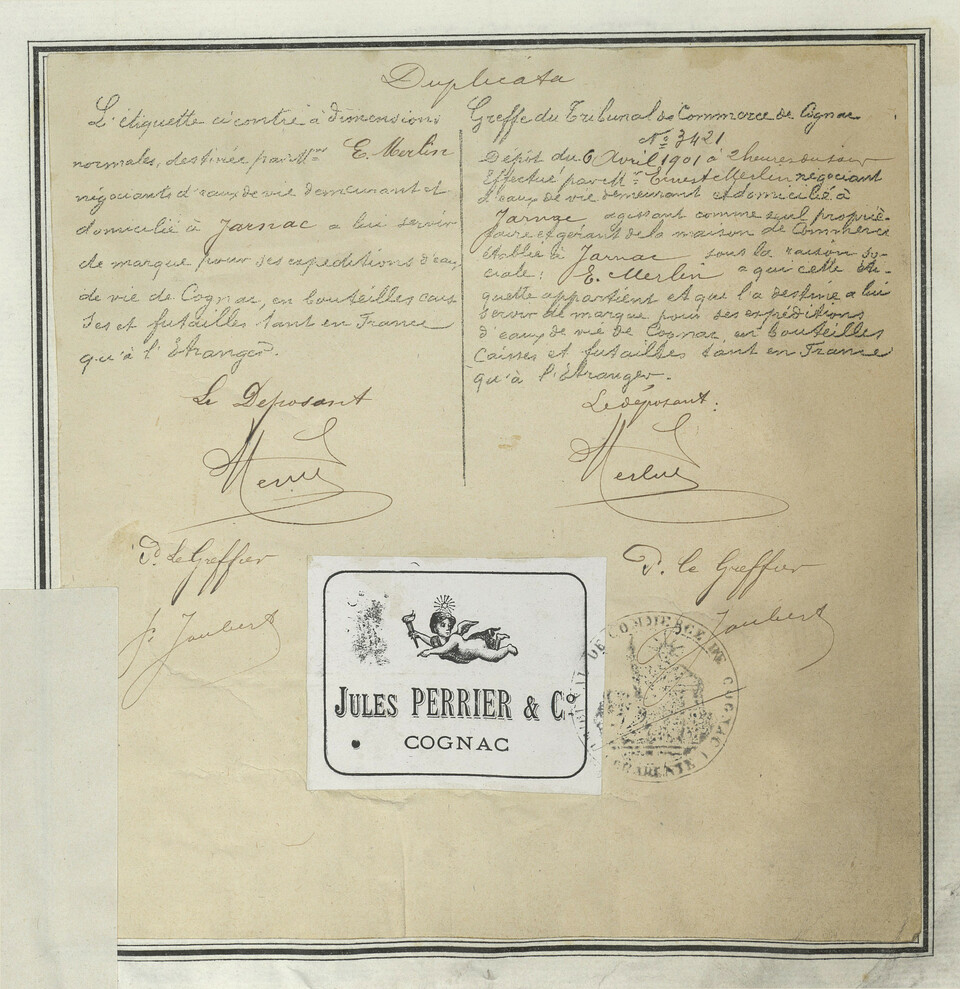 Duplicata
L'étiquette ci contre à dimensions
normales, destinée par Mrs E. Merlin
négociants d'eaux de vie demeurant et
domicilié à Jarnac a lui servir
de marque pour ses expeditions d'eaux
de vie de Cognac, en bouteilles cais
ses et futailles, tant en France
qu'à l'Etranger.
Le Deposant
Merlin
P. le Greffier
Joubert
Greffe du Tribunal de Commerce de Cognac
No 3421
Dépôt du 6 Avril 1901 à 2 heures du soir
Effectué par Mr Ernest Merlin négociant
d'eaux de vie demeurant et domicilié à
Jarnac agissant comme seul proprié-
taire et gérant de la maison de Commerce
établie à Jarnac sous la raison so-
ciale: E. Merlin a qui cette éti-
quette appartient et que l'a destiné a lui
servir de marque pour ses expéditions
d'eaux de vie de Cognac en bouteilles
Caisses et futailles tant en France
qu'à l'étranger.
Le déposant:
Merlin
P. le Greffier
Joubert
JULES PERRIER & Co
COGNAC
TRIBUNAL DE COMMERCE DE COGNAC
CHARENTE